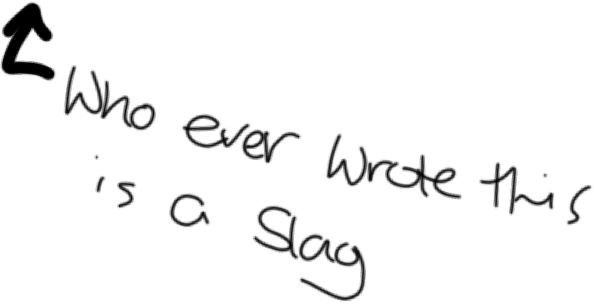 Who ever wrote this
is a Slag